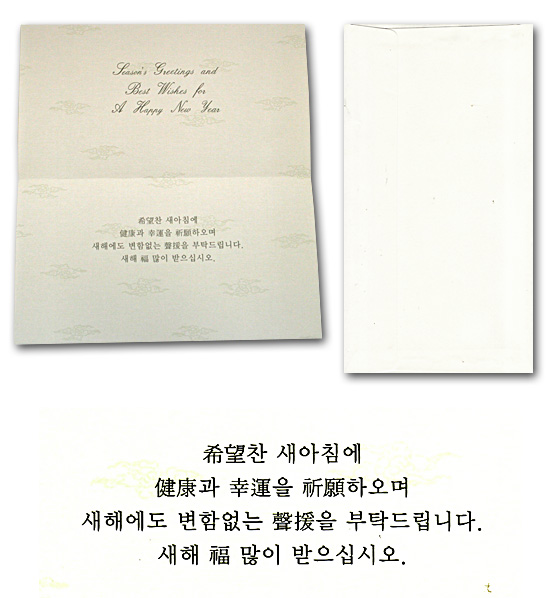 Season's Greetings and
Best Wishes for
A Happy New Year
希望찬 새아침에
健康과 幸運을 祈願하오며
새해에도 변함없는 聲援을 부탁드립니다.
새해 福 많이 받으십시오.
希望찬 새아침에
健康과 幸運을 祈願하오며
새해에도 변함없는 聲援을 부탁드립니다.
새해 福 많이 받으십시오.